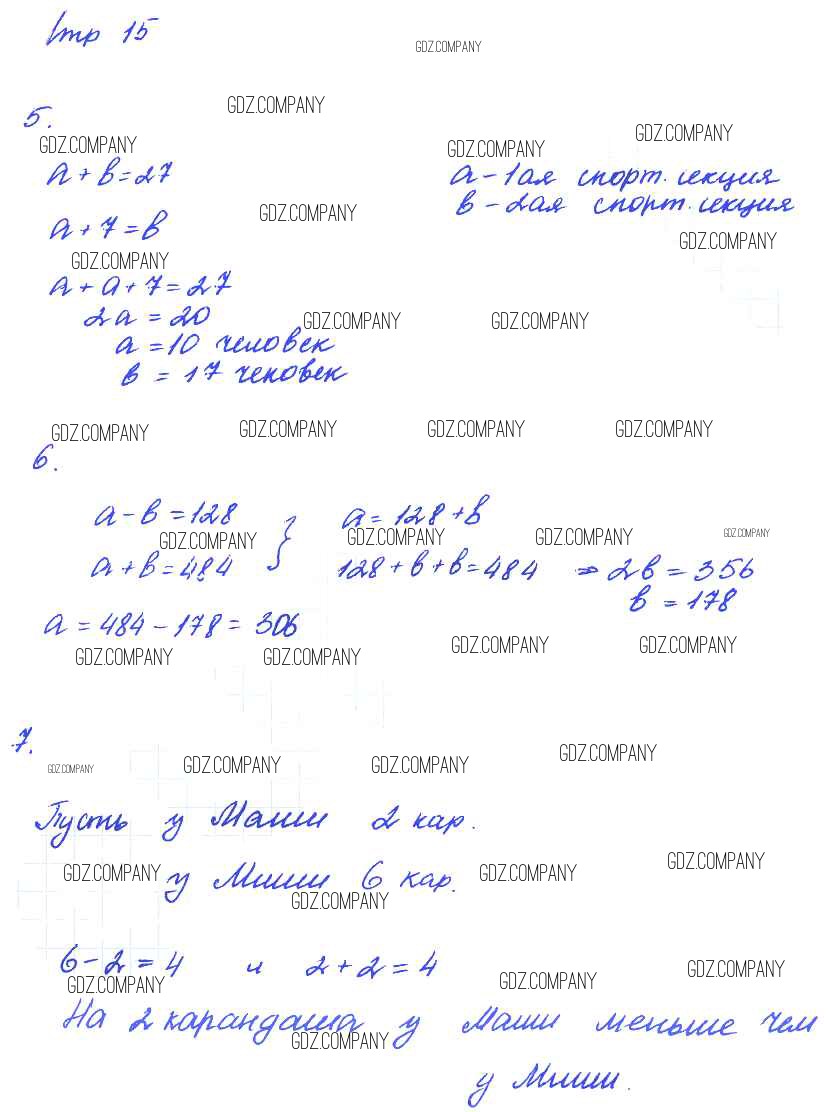 Стр 15
GDZ.COMPANY
GDZ.COMPANY
5.
GDZ.COMPANY GDZ.COMPANY GDZ.COMPANY
a + b = 27 a - 1ая спорт. секция
b - 2ая спорт. секция
a + 7 = b GDZ.COMPANY
GDZ.COMPANY GDZ.COMPANY
a + a + 7 = 27
2a = 20 GDZ.COMPANY GDZ.COMPANY
a = 10 человек
b = 17 человек
GDZ.COMPANY GDZ.COMPANY GDZ.COMPANY GDZ.COMPANY
6.
a - b = 128 a = 128 + b
GDZ.COMPANY } GDZ.COMPANY GDZ.COMPANY GDZ.COMPANY
a + b = 484 128 + b + b = 484 ⇒ 2b = 356
b = 178
a = 484 - 178 = 306
GDZ.COMPANY GDZ.COMPANY GDZ.COMPANY GDZ.COMPANY
7.
GDZ.COMPANY GDZ.COMPANY GDZ.COMPANY GDZ.COMPANY
Пусть у Маши 2 кар.
GDZ.COMPANY у Миши 6 кар. GDZ.COMPANY GDZ.COMPANY
GDZ.COMPANY
6 - 2 = 4 и 2 + 2 = 4
GDZ.COMPANY GDZ.COMPANY GDZ.COMPANY
На 2 карандаша у Маши меньше чем
GDZ.COMPANY
у Миши.